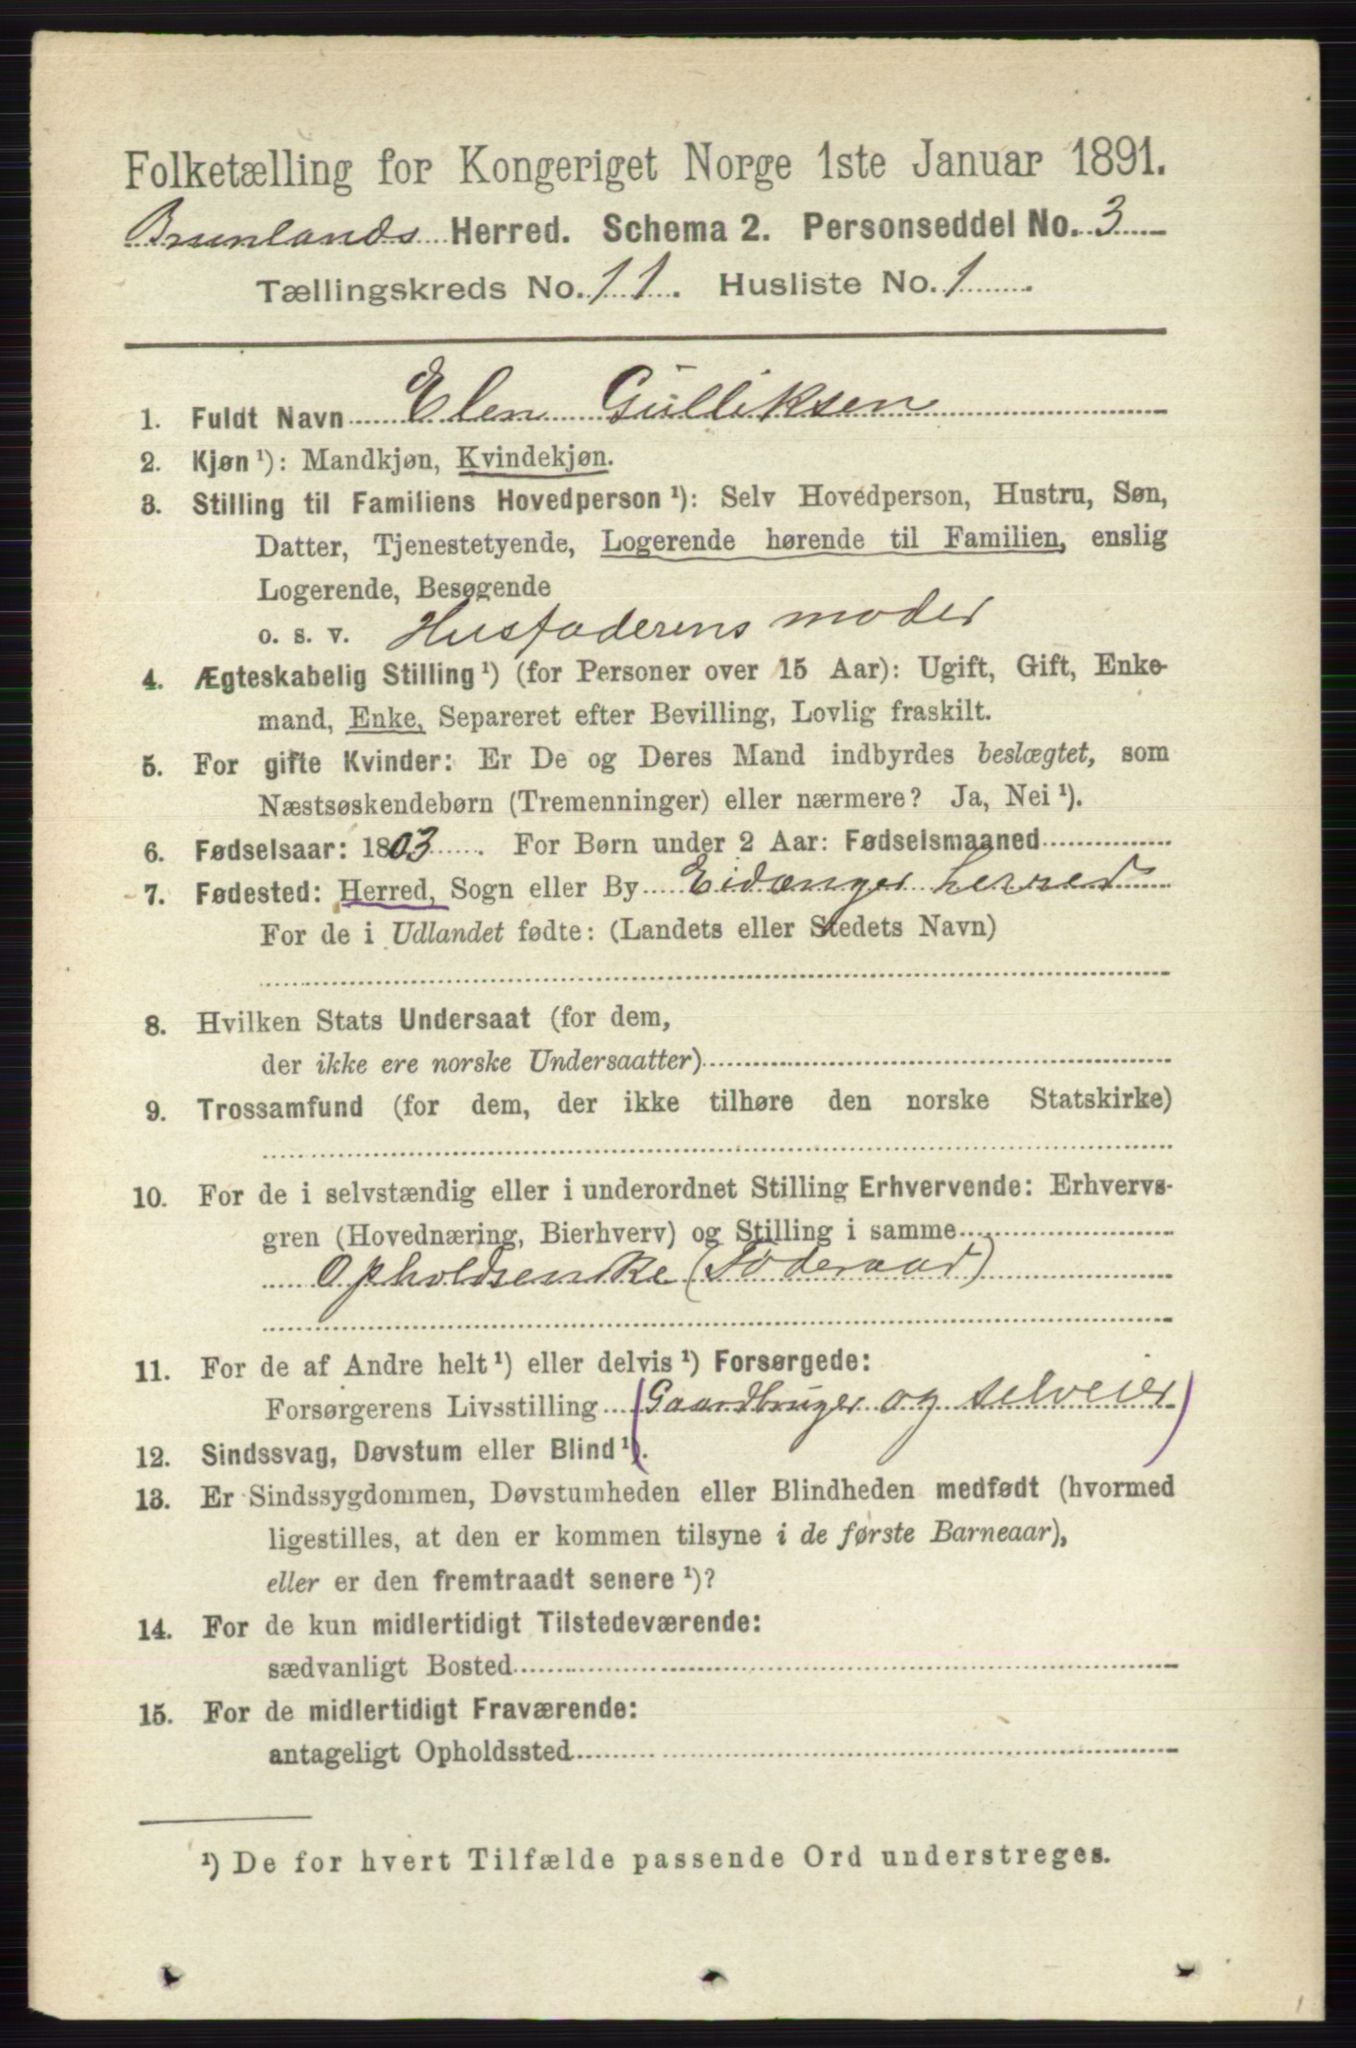 Folketælling for Kongeriget Norge 1ste Januar 1891.
Brunlands Herred. Schema 2. Personseddel No. 3
Tællingskreds No. 11. Husliste No. 1
1. Fuldt Navn Elen Gulliksen
2. Kjøn ¹): Mandkjøn, Kvindekjøn.
3. Stilling til Familiens Hovedperson ¹): Selv Hovedperson, Hustru, Søn,
Datter, Tjenestetyende, Logerende hørende til Familien, enslig
Logerende, Besøgende
o. s. v. Husfaderens moder
4. Ægteskabelig Stilling ¹) (for Personer over 15 Aar): Ugift, Gift, Enke-
mand, Enke, Separeret efter Bevilling, Lovlig fraskilt.
5. For gifte Kvinder: Er De og Deres Mand indbyrdes beslægtet, som
Næstsøskendebørn (Tremenninger) eller nærmere? Ja, Nei ¹).
6. Fødselsaar: 1803. For Børn under 2 Aar: Fødselsmaaned
7. Fødested: Herred, Sogn eller By Eidanger herred
For de i Udlandet fødte: (Landets eller Stedets Navn)
8. Hvilken Stats Undersaat (for dem,
der ikke ere norske Undersaatter)
9. Trossamfund (for dem, der ikke tilhøre den norske Statskirke)
10. For de i selvstændig eller i underordnet Stilling Erhvervende: Erhvervs-
gren (Hovednæring, Bierhverv) og Stilling i samme
Opholdsenke (Föderaad)
11. For de af Andre helt ¹) eller delvis ¹) Forsørgede:
Forsørgerens Livsstilling (Gaardbruger og selveier)
12. Sindssvag, Døvstum eller Blind ¹).
13. Er Sindssygdommen, Døvstumheden eller Blindheden medfødt (hvormed
ligestilles, at den er kommen tilsyne i de første Barneaar),
eller er den fremtraadt senere ¹)?
14. For de kun midlertidigt Tilstedeværende:
sædvanligt Bosted
15. For de midlertidigt Fraværende:
antageligt Opholdssted
¹) De for hvert Tilfælde passende Ord understreges.